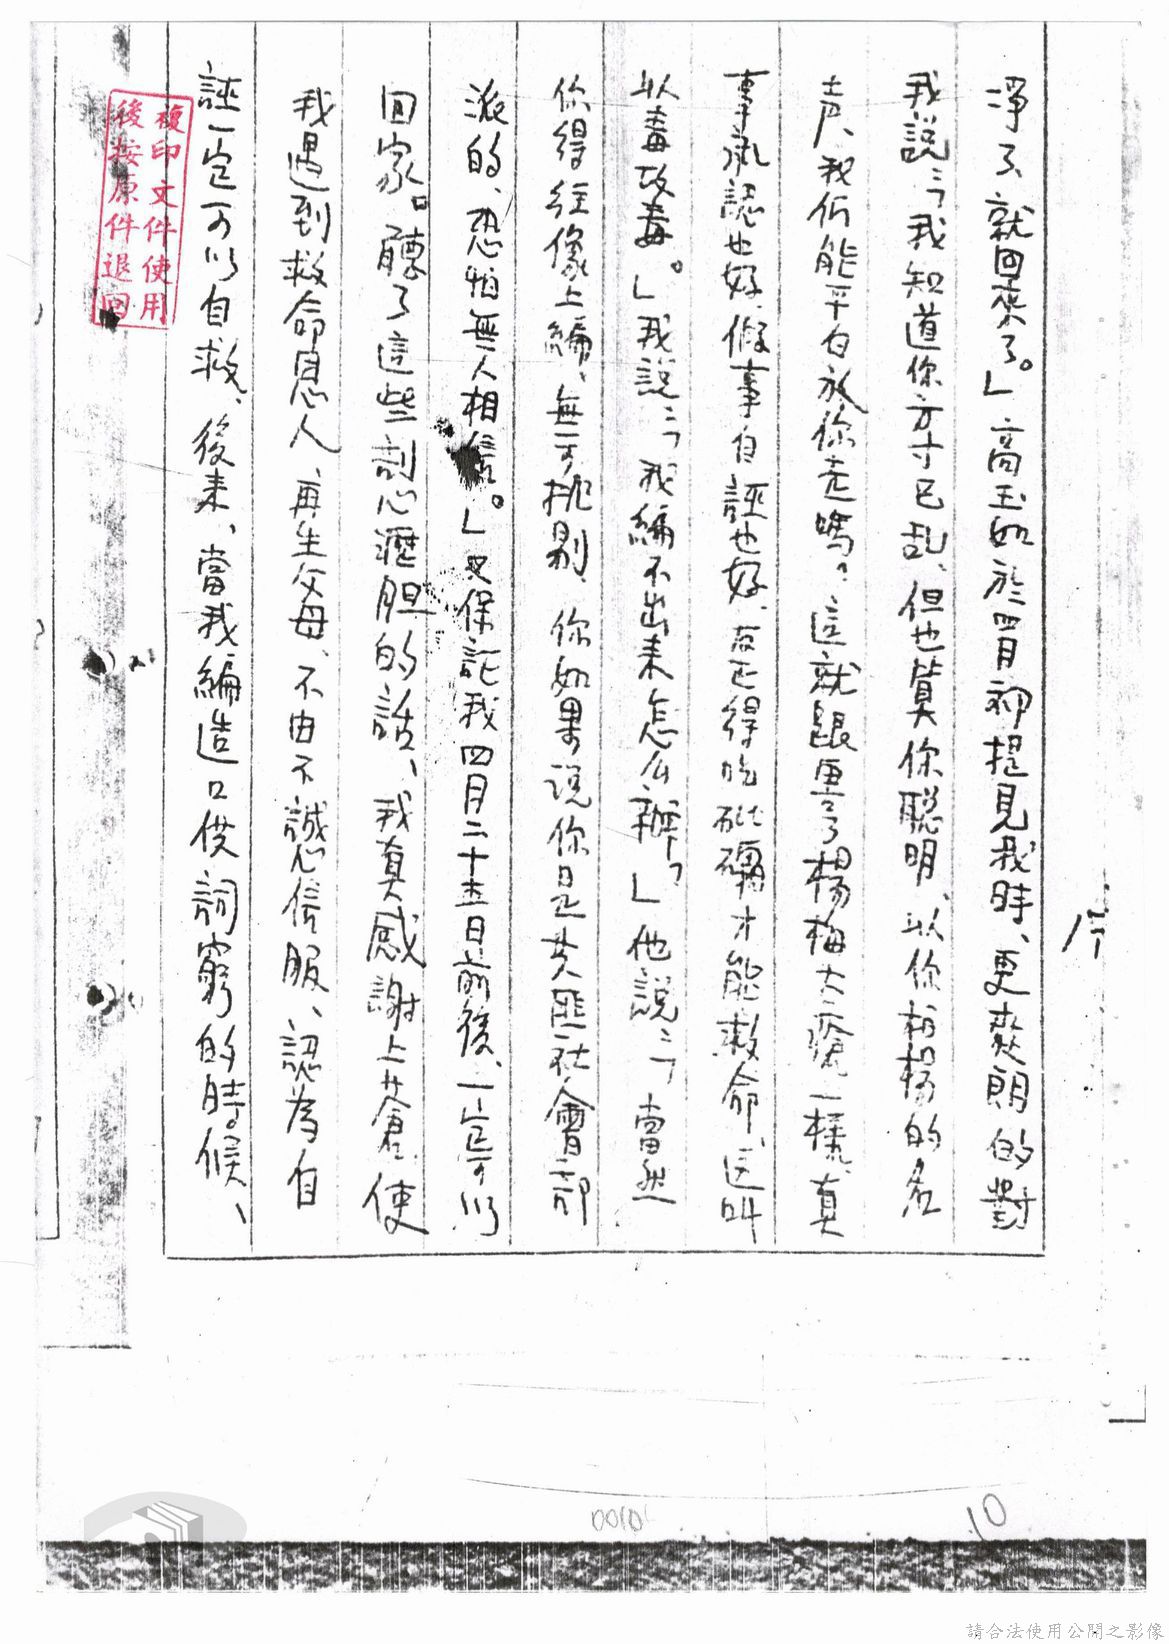 淨了、就回來了。」高玉如於四月初提見我時、更爽朗的對
我説:「我知道你方寸已乱、但也算你聪明、以你柏楊的名
声、我们能平白放你走嗎?這就跟害了楊梅大瘡一樣、真
事承認也好、假事自誣也好、反正得吃砒礵才能救命、这叫
以毒攻毒。」我説:「我編不出来怎么辦?」他説:「當然
你得往像上編、無可挑剔、你如果说你是共匪社會部
派的、恐怕無人相信。」又保証我四月二十五日前後、一定可以
回家。聽了這些剖心瀝胆的話、我真感謝上蒼、使
我遇到救命恩人、再生父母、不由不誠心信服、認為自
誣一定可以自救、後来、當我編造口供詞窮的時候、
复印文件使用
後按原件退回
0010
10
請合法使用公開之影像